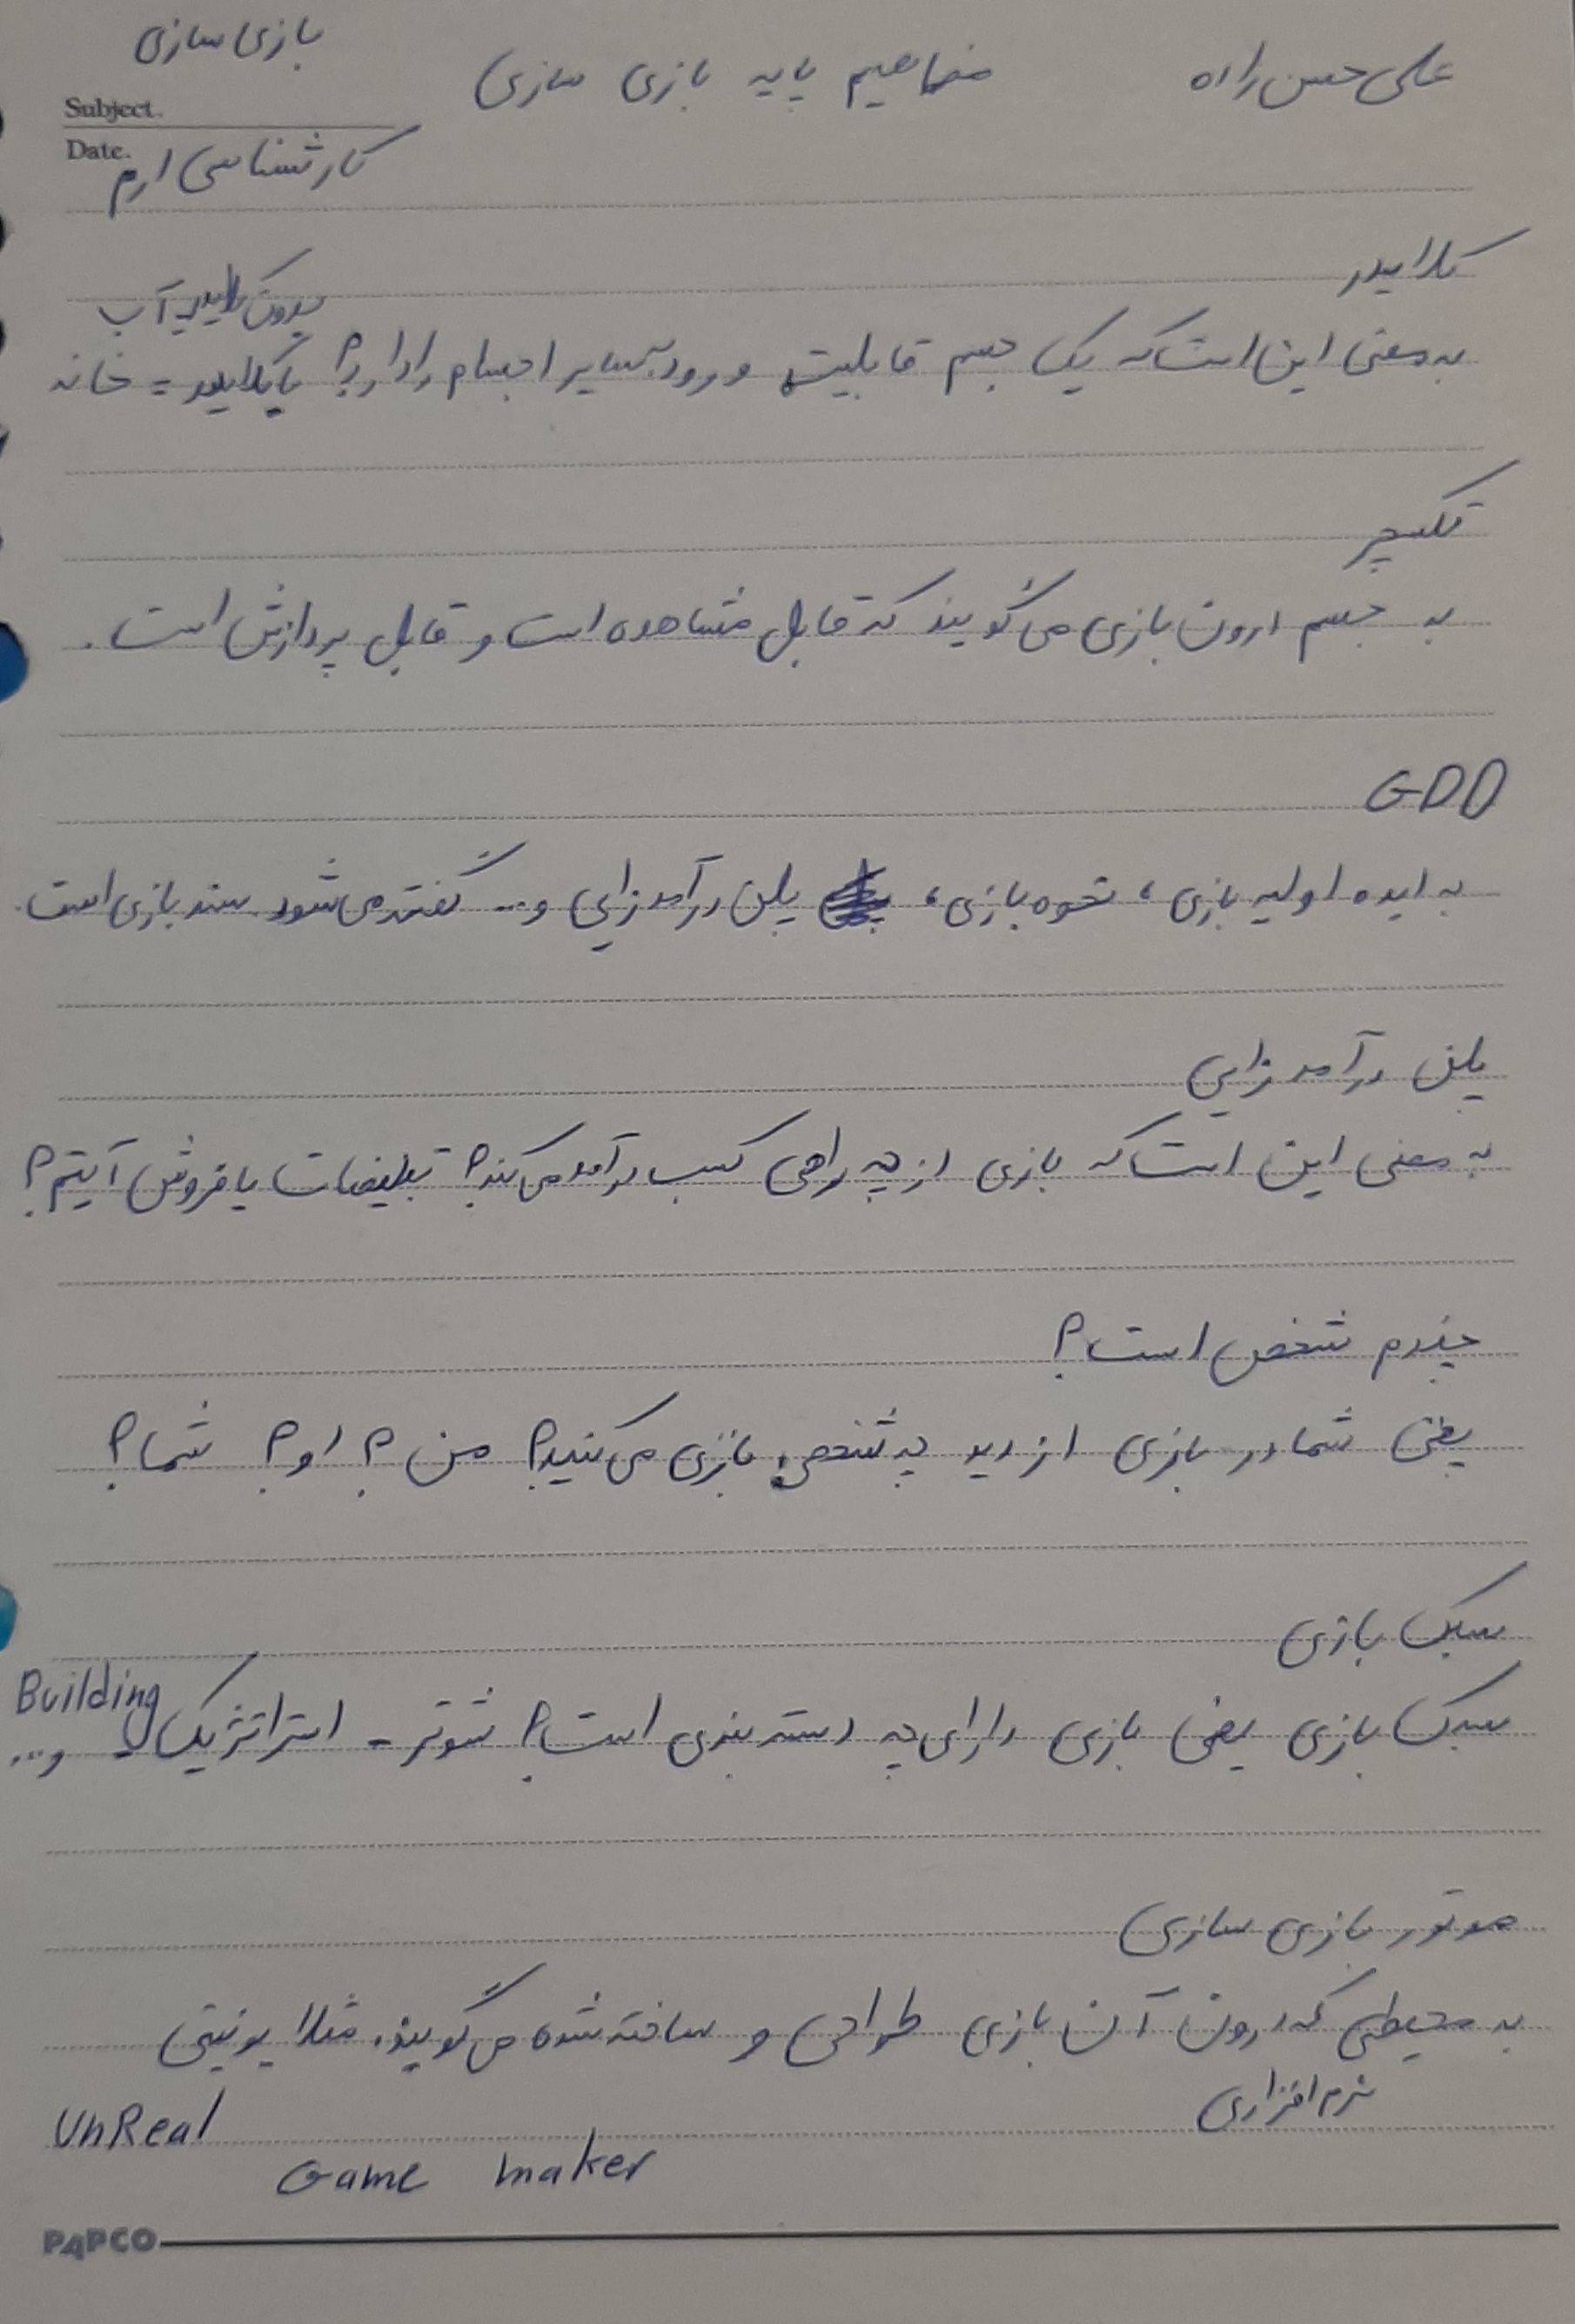 بازی سازی
علی حسن زاده
مفاهیم پایه بازی سازی
Subject.
Date.
کارشناسی ارم
کلایدر
بدون کلایدر = آب
به معنی این است که یک جسم قابلیت ورود به سایر اجسام را دارد؟ با کلایدر = خانه
تکسچر
به جسم درون بازی می گویند که قابل مشاهده است و قابل پردازش است.
GDD
به ایده اولیه بازی، نحوه بازی، پلن درآمدزایی و... گفته می شود. سند بازی است.
پلن درآمدزایی
به معنی این است که بازی از چه راهی کسب درآمد می کند؟ تبلیغات یا فروش آیتم؟
چندم شخص است؟
یعنی شما در بازی از دید چه شخصی بازی می کنید؟ من؟ او؟ شما؟
سبک بازی
Building
سبک بازی یعنی بازی دارای چه دسته بندی است؟ شوتر - استراتژیک - و...
موتور بازی سازی
به محیطی که درون آن بازی طراحی و ساخته شده می گویند. مثلا یونیتی
نرم افزاری
UnReal
Game maker
PAPCO